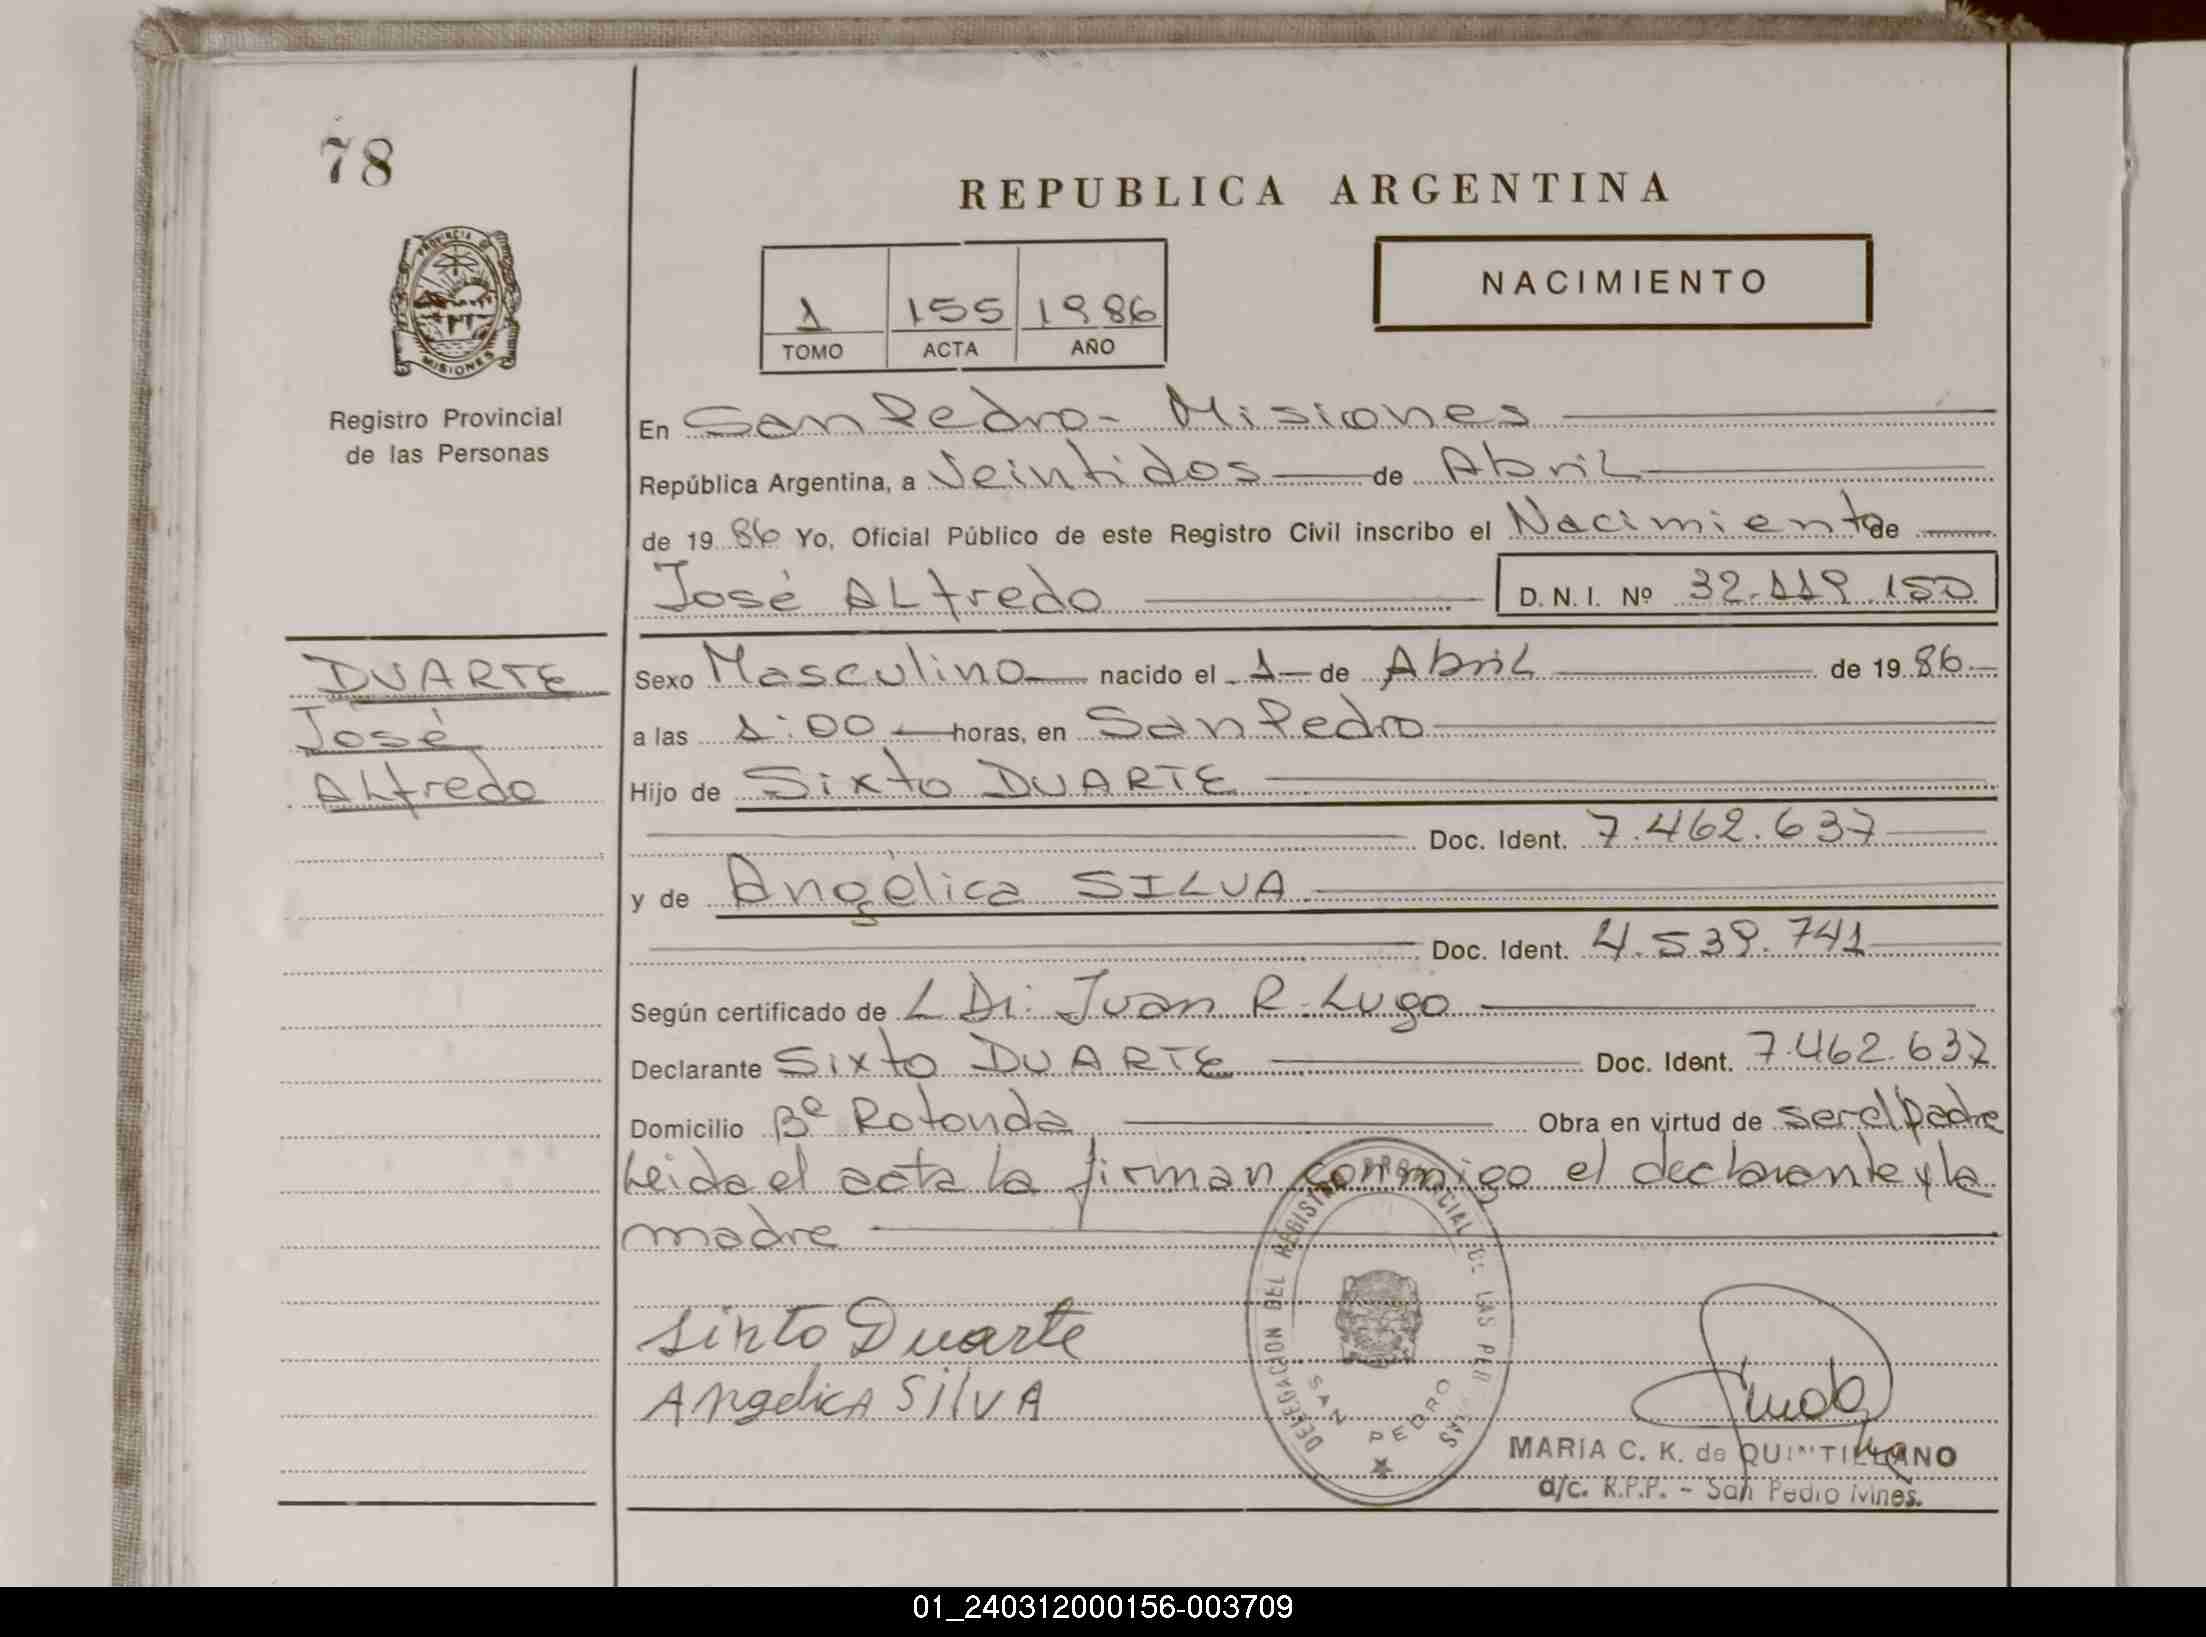 78
REPUBLICA ARGENTINA
PROVINCIA DE
MISIONES
NACIMIENTO
1 155 1986
TOMO ACTA AÑO
Registro Provincial
de las Personas
En San Pedro - Misiones
República Argentina, a Veintidos de Abril
de 1986 Yo, Oficial Público de este Registro Civil inscribo el Nacimiento de
José Alfredo D.N.I. Nº 32.119.150
DUARTE
José
Alfredo
Sexo Masculino nacido el 1 de Abril de 1986
a las 1:00 horas, en San Pedro
Hijo de Sixto DUARTE
Doc. Ident. 7.462.637
y de Angélica SILVA
Doc. Ident. 4.539.741
Según certificado de L Di. Juan R. Lugo
Declarante Sixto DUARTE Doc. Ident. 7.462.637
Domicilio Bº Rotonda Obra en virtud de ser el padre
Leida el acta la firman conmigo el declarante y la
madre
Sixto Duarte
Angelica Silva
DELEGACION DEL REGISTRO PROVINCIAL DE LAS PERSONAS
SAN PEDRO
MARIA C. K. de QUINTILLANO
a/c. R.P.P. - San Pedro Mnes.
01_240312000156-003709